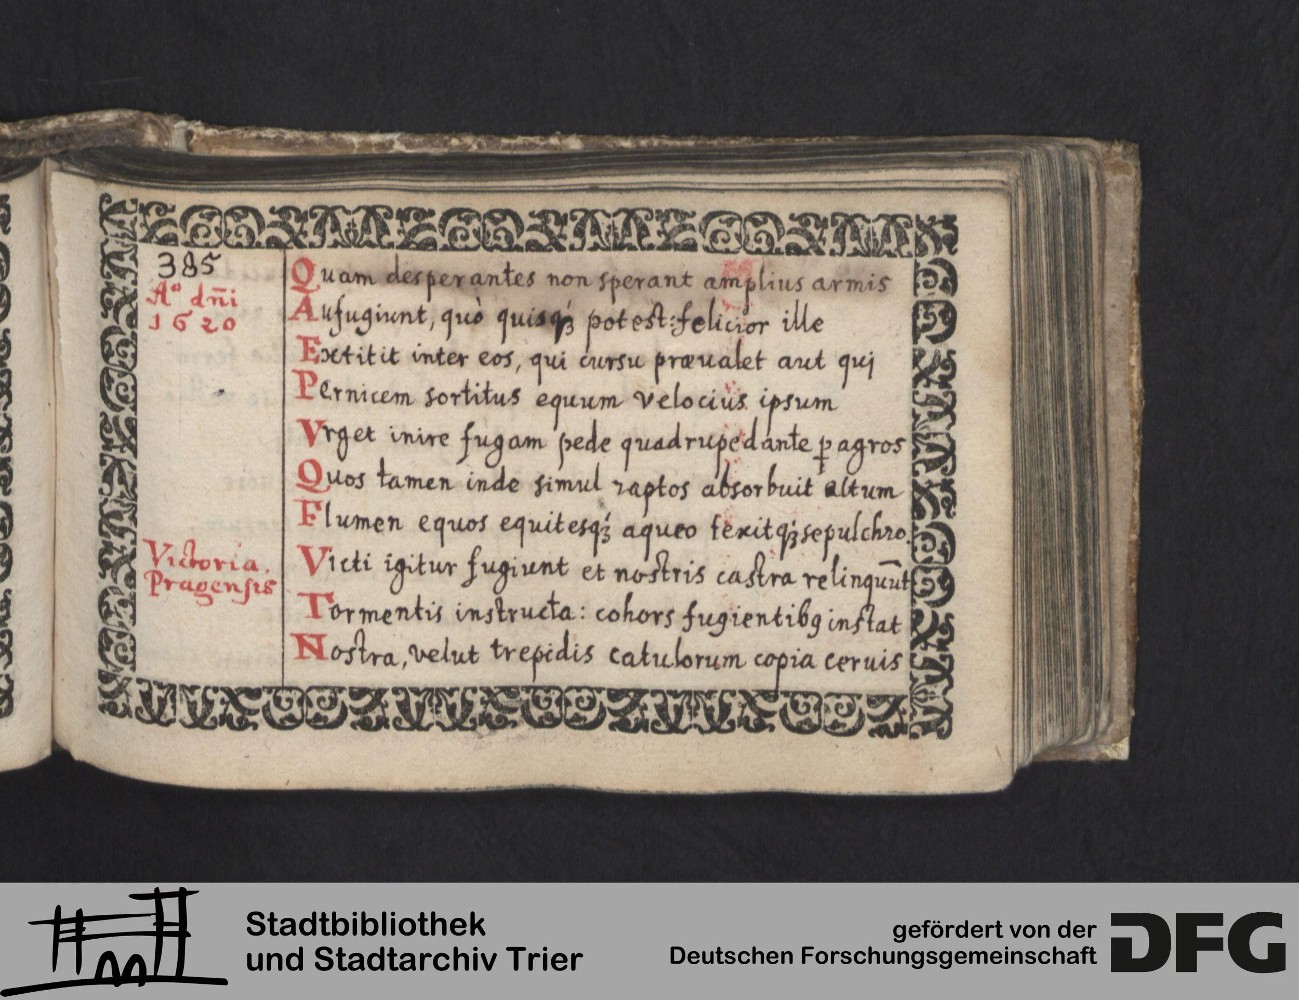 385
Aº dñi
1620
Quam desperantes non sperant amplius armis
Aufugiunt, quò quisqꝫ potest: felicior ille
Extitit inter eos, qui cursu præualet aut qui
Pernicem sortitus equum velociùs ipsum
Vrget inire fugam pede quadrupedante ꝑ agros
Quos tamen inde simul raptos absorbuit altum
Flumen equos equitesqꝫ aqueo texitqꝫ sepulchro.
Victoria.
Pragensis
Victi igitur fugiunt et nostris castra relinquūt
Tormentis instructa: cohors fugientibꝯ instat
Nostra, velut trepidis catulorum copia ceruis
Stadtbibliothek
und Stadtarchiv Trier
gefördert von der
Deutschen Forschungsgemeinschaft
DFG